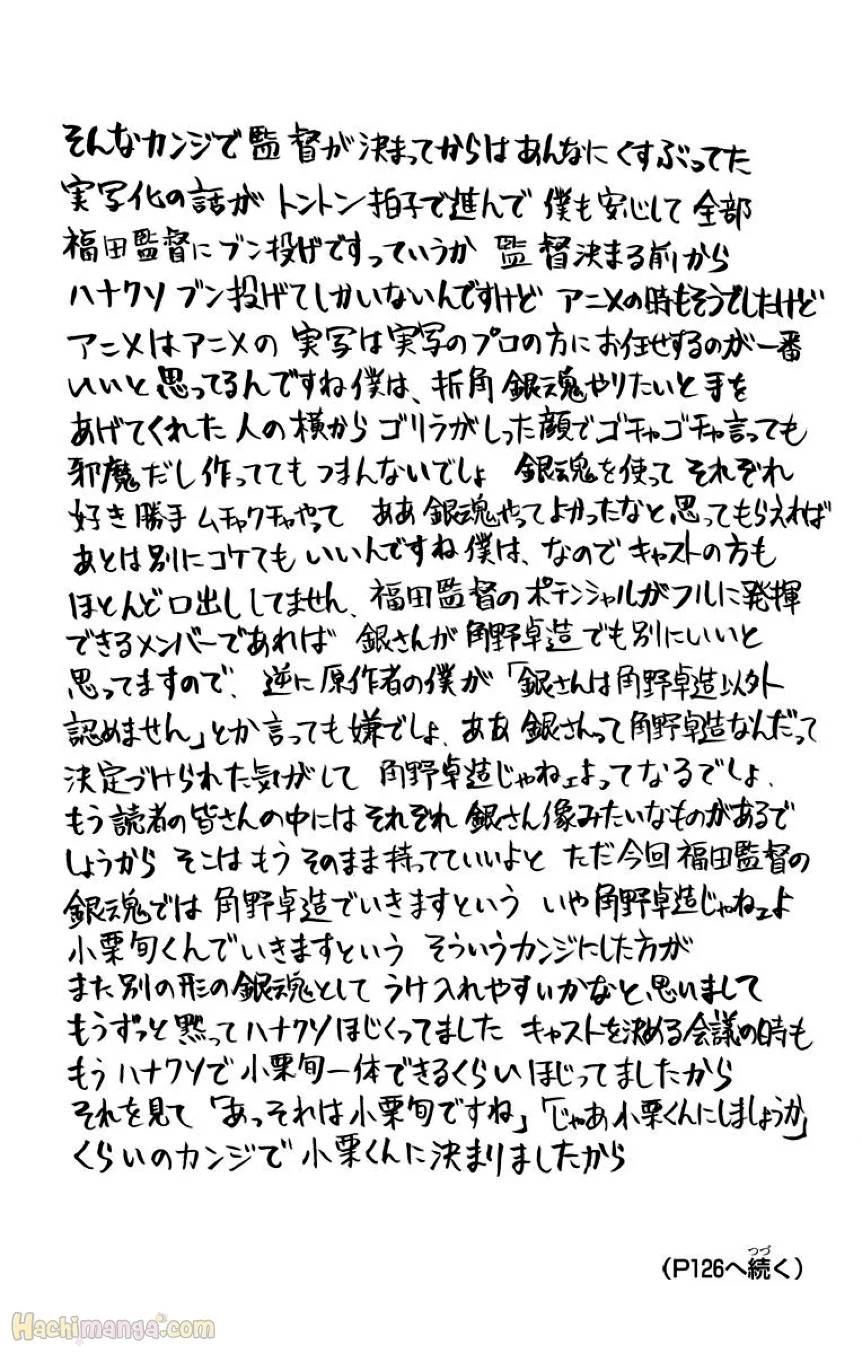 そんなカンジで監督が決まってからはあんなにくすぶってた
実写化の話が トントン拍子で進んで 僕も安心して 全部
福田監督にブン投げですっていうか 監督決まる前から
ハナクソ ブン投げてしかいないんですけど アニメの時もそうでしたけど
アニメはアニメの 実写は実写のプロの方にお任せするのが一番
いいと思ってるんですね僕は、折角 銀魂やりたいと手を
あげてくれた人の横から ゴリラがしった顔でゴチャゴチャ言っても
邪魔だし作っててもつまんないでしょ 銀魂を使って それぞれ
好き勝手ムチャクチャやって ああ銀魂やってよかったなと思ってもらえれば
あとは別にコケてもいいんですね僕は、なので キャストの方も
ほとんど口出ししてません、福田監督のポテンシャルがフルに発揮
できるメンバーであれば 銀さんが角野卓造でも別にいいと
思ってますので、逆に原作者の僕が「銀さんは角野卓造以外
認めません」とか言っても嫌でしょ、ああ 銀さんって角野卓造なんだって
決定づけられた気がして 角野卓造じゃねェよってなるでしょ、
もう読者の皆さんの中にはそれぞれ 銀さん像みたいなものがあるで
しょうから そこはもうそのまま持ってていいよと ただ今回福田監督の
銀魂では 角野卓造でいきますという いや角野卓造じゃねェよ
小栗旬くんでいきますという そういうカンジにした方が
また別の形の銀魂として うけ入れやすいかなと、思いまして
もうずっと黙ってハナクソほじくってました キャストを決める会議の時も
もうハナクソで小栗旬一体できるくらいほじってましたから
それを見て「あっそれは小栗旬ですね」「じゃあ小栗くんにしましょうか」
くらいのカンジで 小栗くんに決まりましたから
(P126へ続く)
つづ
Hachimanga.com